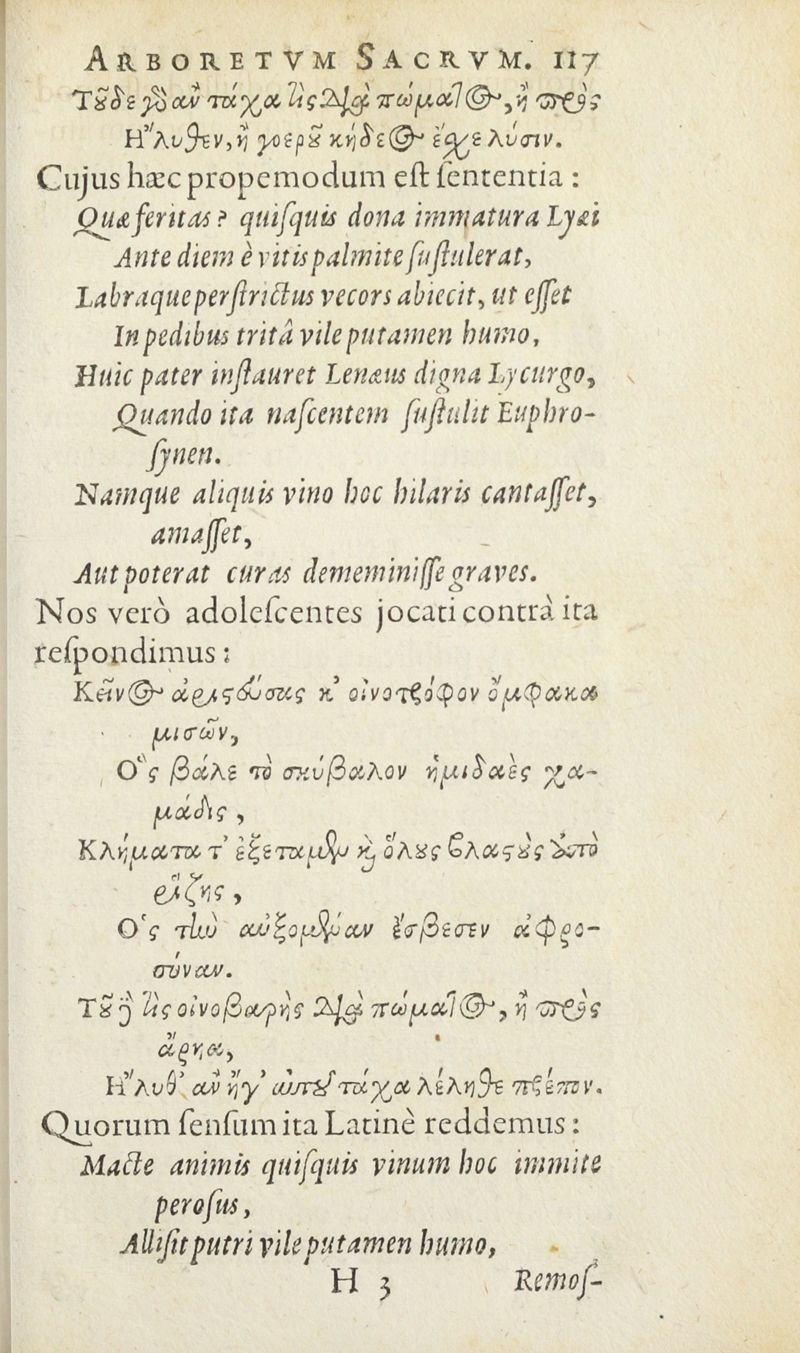 ARBORETVM SACRVM. 117
Τοῦδε γὸ ἀν τάχα τὶς διὰ πώματ(ος), ἢ πρὸς
Ηʺλυθεν, ἢ γοεροῦ κήδε(ος) ἔσχε λύσιν.
Cujus hæc propemodum eſt ſententia :
Quæ feritas ? quiſquis dona immatura Lyæi
Ante diem è vitis palmite ſuſtulerat,
Labraque perſtrictus vecors abiecit, ut eſſet
In pedibus tritâ vile putamen humo,
Huic pater inſtauret Lenæus digna Lycurgo,
Quando ita naſcentem ſuſtulit Euphro-
ſynen.
Namque aliquis vino hoc hilaris cantaſſet,
amaſſet,
Aut poterat curas dememiniſſe graves.
Nos verò adoleſcentes jocati contrà ita
reſpondimus :
Κεῖν(ος) ἀριστεύσας κ' οἰνοτρόφον ὄμφακα
μισῶν,
Ὃς βάλε τὸ σκύβαλον ἡμιδαὲς χα-
μάδις,
Κλήματα τ' ἐξεταμεν καὶ ὅλους βλαστοὺς ἀπὸ
ῥίζης,
Ὃς τὴν αὐξομένην ἔσβεσεν ἀφρο-
σύναν.
Τοῦ δέ τὶς οἰνοβαρὴς διὰ πώματ(ος), ἢ πρὸς
ἄρηα,
Ηʺλυθ' ἀν ἤγ' αὐτοῦ τάχα λέληθε πρέπον.
Quorum ſenſum ita Latinè reddemus :
Macte animis quiſquis vinum hoc immite
peroſus,
Alliſit putri vile putamen humo,
H 3 Remoſ-